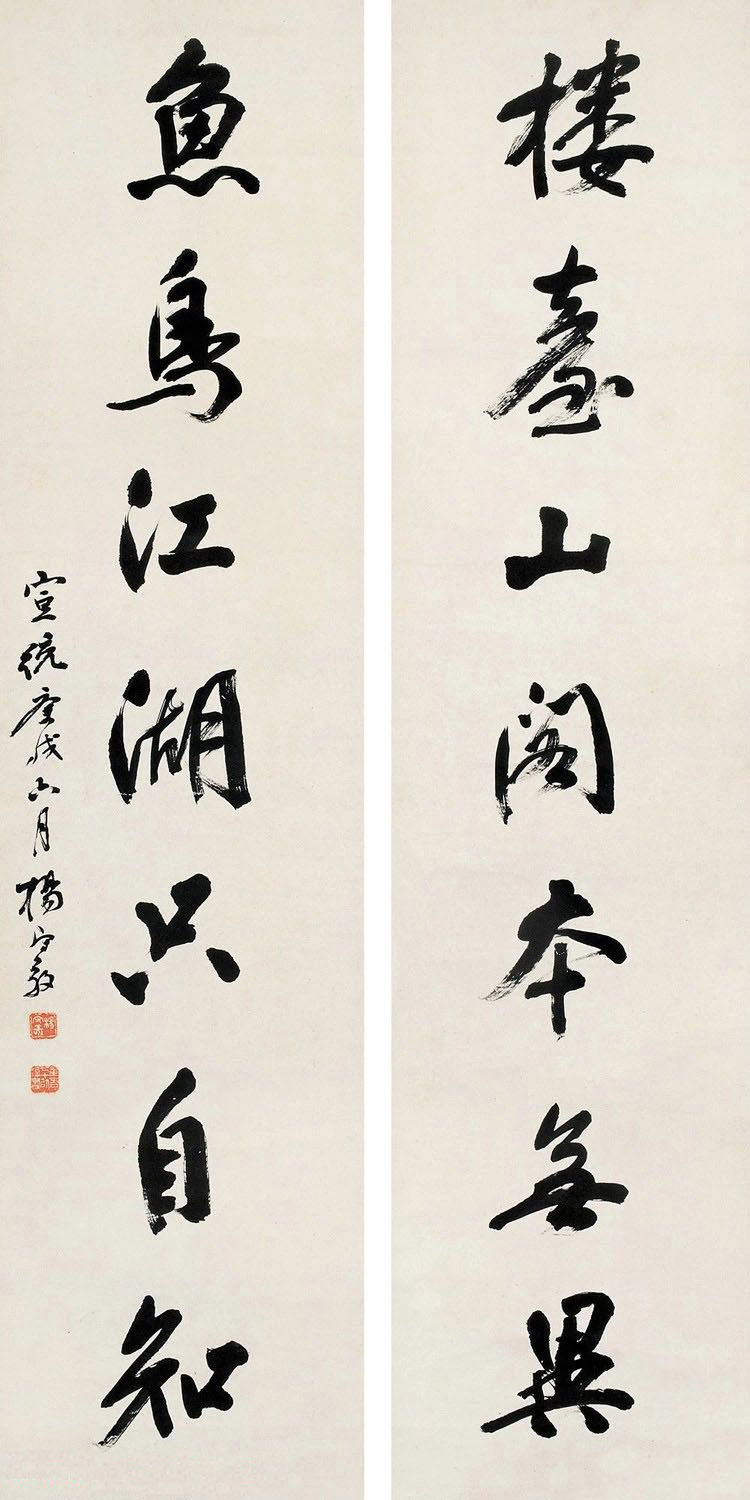 楼臺山阁本無異
魚鳥江湖只自知
宣統庚戌六月楊守敬